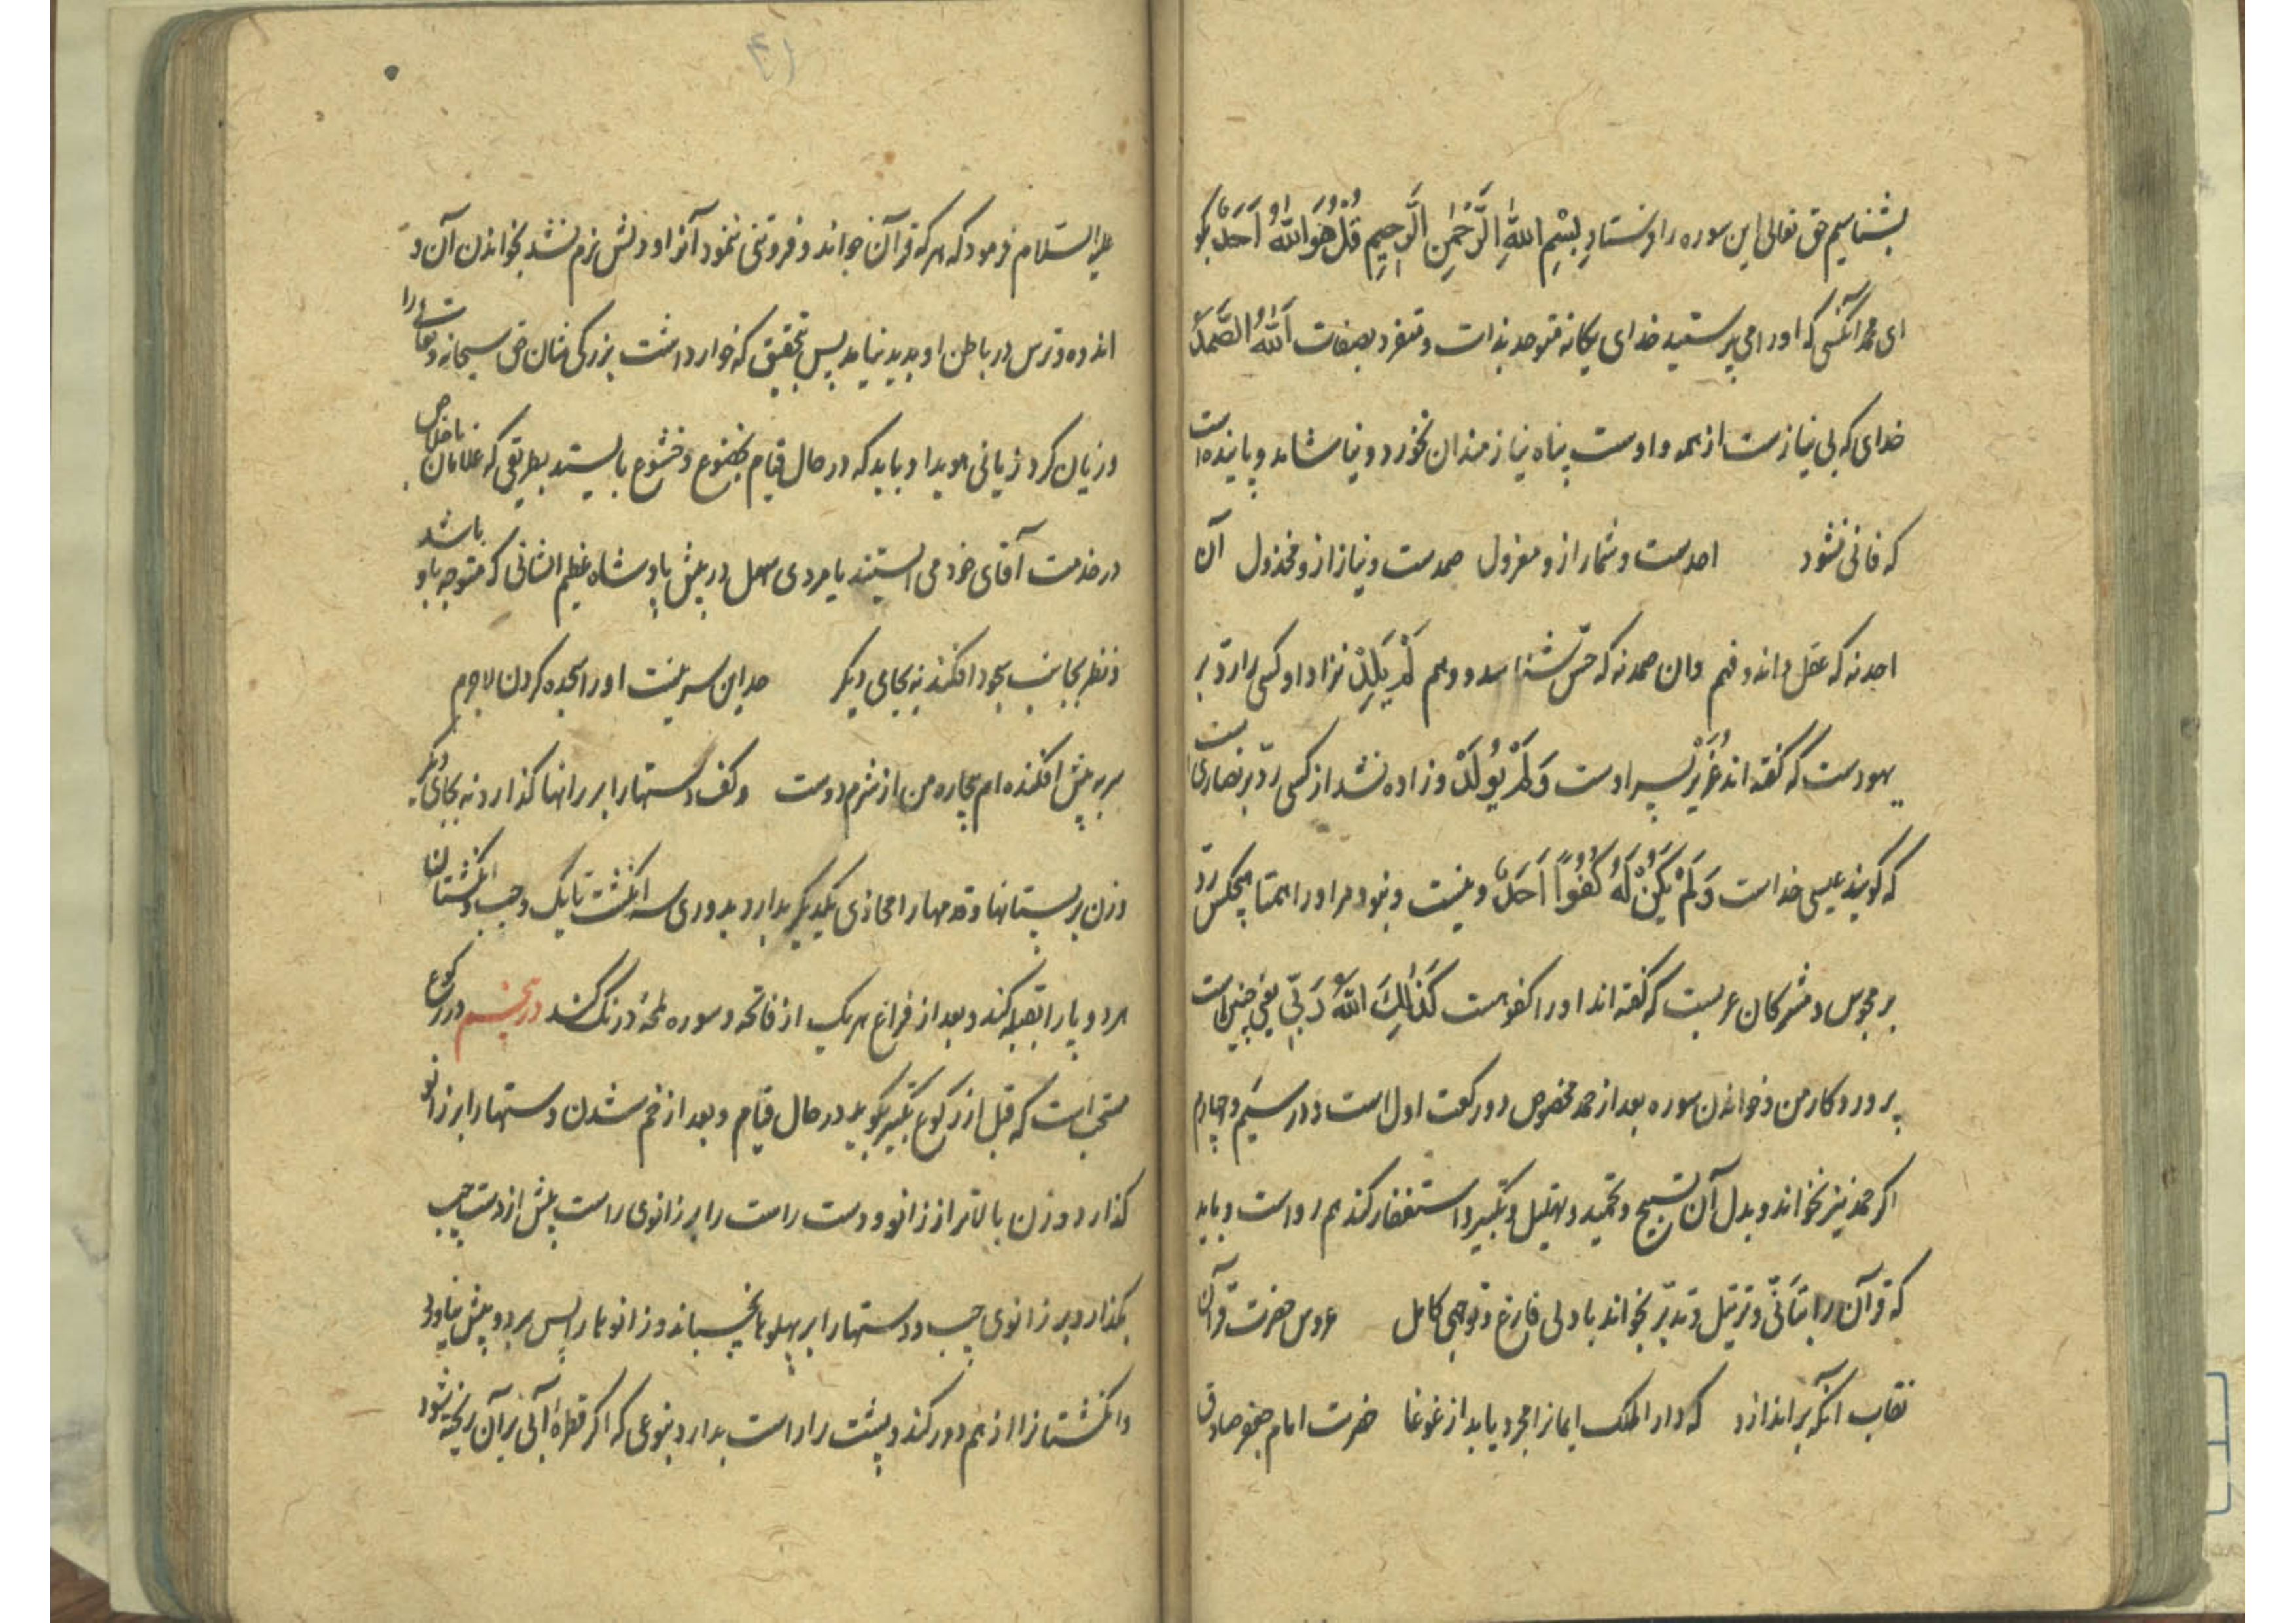 بشناسیم حق تعالی این سوره را فرستاد بِسْمِ اللّٰهِ الرَّحْمٰنِ الرَّحِیمِ قُلْ هُوَ اللّٰهُ اَحَدٌ بگو
ای محمد آنکسی که اورا می پرستید خدای یکانه متوحد بذات و متفرد بصفات اَللّٰهُ الصَّمَدُ
خدای که بی نیازست از همه و اوست پناه نیازمندان نخورد و نیاشامد و پاینده است
که فانی نشود احدست و شمار ازو معزول صمدست و نیاز ازو مخذول آن
احد نه که عقل داند و فهم وان صمد نه که حسّ شناسد و وهم لَمْ یَلِدْ نزاد او کسی را ردّ بر
یهودست که گفته اند عُزَیْر پسر اوست وَلَمْ یُولَدْ و زاده نشد از کسی ردّ بر نصاری است
که گویند عیسی خداست وَلَمْ یَکُنْ لَهُ کُفُوًا اَحَدٌ و نیست و نبود مر اورا همتا هیچکس ردّ
بر مجوس و مشرکان عربست که گفته اند اورا کفو هست کَذٰلِکَ اللّٰهُ رَبّی یعنی چنین است
پروردکار من و خواندن سوره بعد از حمد مخصوص دو رکعت اول است و در سیّم و چهارم
اکر حمد نیز نخواند و بدل آن تسبیح و تحمید و تهلیل و تکبیر و استغفار کند هم رواست و باید
که قرآن را بتأنّی و ترتیل و تدبّر بخواند با دلی فارغ و توجهی کامل عروس حضرت قرآن
نقاب آنکه براندازد که دار الملک ایمانرا مجرد یابد از غوغا حضرت امام جعفر صادق
علیه السّلام فرمود که هر که قرآن خواند و فروتنی ننمود آنرا و دلش نرم نشد بخواندن آن و
اندوه و ترس در باطن او پدید نیامد پس بتحقیق که خوار داشت بزرکی شان حق سبحانه وتعالی را
و زیان کرد زیانی هویدا و باید که در حال قیام بخضوع و خشوع بایستد بطریقی که غلامان با خلاص
در خدمت آقای خود می ایستند یا مردی سهل در پیش پادشاه عظیم الشانی که متوجه باو باشد
و نظر بجانب سجود افکند نه بجای دیگر حد این سر نیست اورا سجده کردن لاجرم
سر به پیش افکنده ام بیچاره من از شرم دوست و کف دستها را بر رانها گذارد نه بجای دیگر
و زن بر پستانها و قدمها را محاذی یکدیگر بدارد بدوری سه انگشت تا یک وجب و انگشتان
هر دو پا را بقبله کند و بعد از فراغ هر یک از فاتحه و سوره لمحهٔ درنگ کند در پنجم در رکوع
مستحب است که قبل از رکوع تکبیر بگوید در حال قیام و بعد از خم شدن دستها را بر زانو
گذارد و زن بالاتر از زانو و دست راست را بر زانوی راست پیش از دست چپ
بگذارد بر زانوی چپ و دستها را بر پهلوها نچسباند و زانوها را پس برد و پیش نیاورد
و انگشتانرا از هم دور کند و پشت را راست بدارد بنوعی که اکر قطرهٔ آبی بر آن ریخته شود